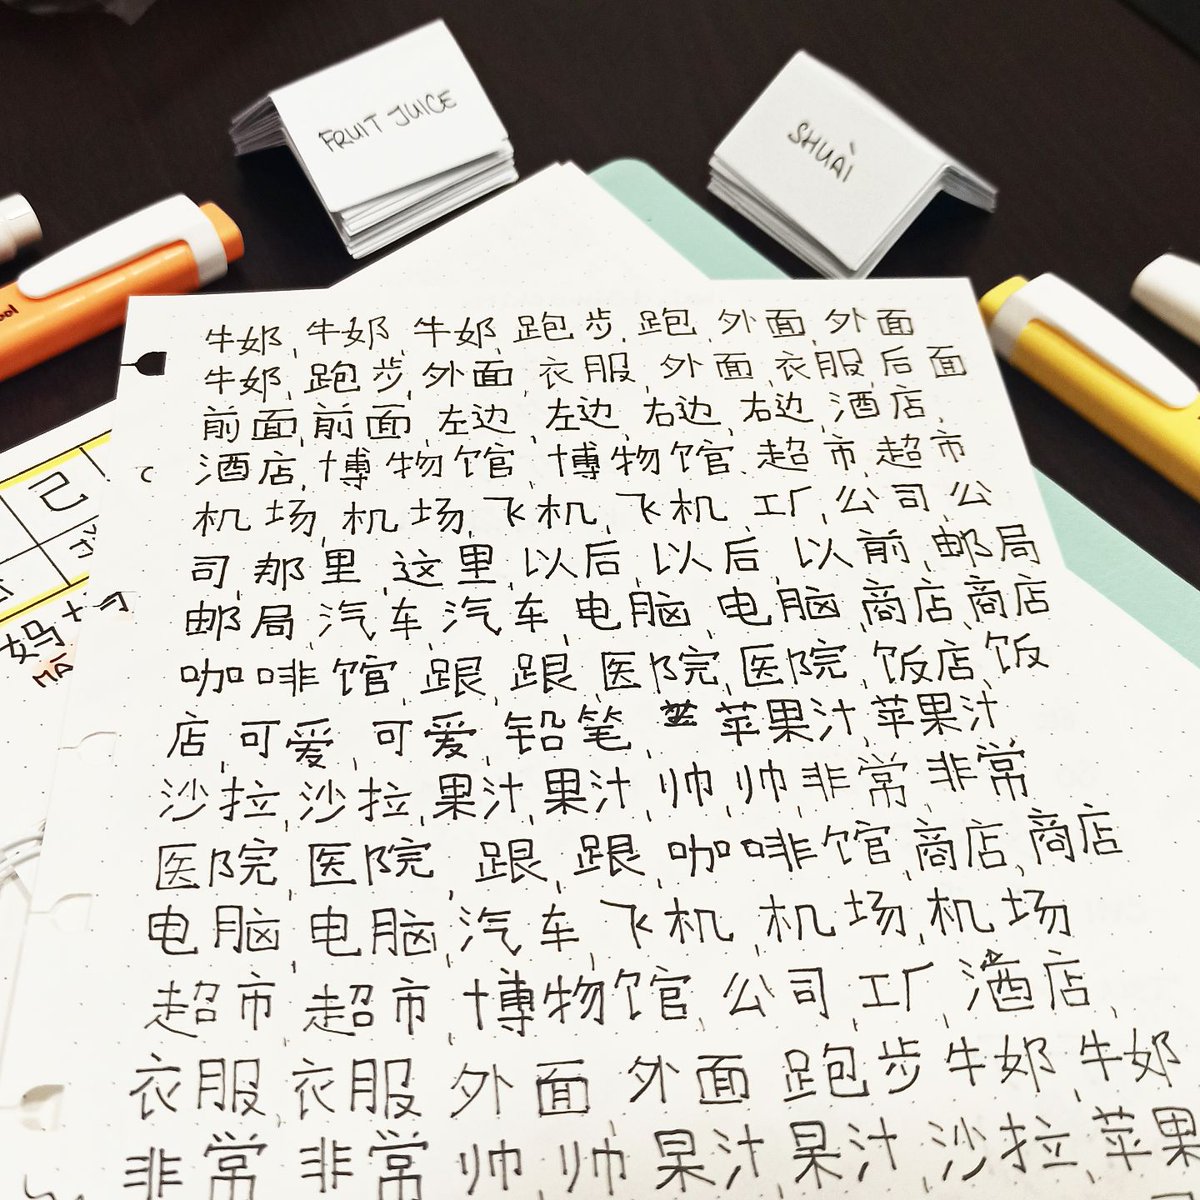 FRUIT JUICE
SHUAÌ
ool
己
妈
MĀ
牛奶,牛奶,牛奶,跑步,跑,外面,外面
牛奶,跑步,外面,衣服,外面,衣服,后面
前面,前面,左边,左边,右边,右边,酒店,
酒店,博物馆,博物馆,超市,超市
机场,机场,飞机,飞机,工厂,公司,公
司,那里,这里,以后,以后,以前,邮局
邮局,汽车,汽车,电脑,电脑,商店,商店
咖啡馆,跟,跟,医院,医院,饭店,饭
店,可爱,可爱,铅笔,苹果汁,苹果汁,
沙拉,沙拉,果汁,果汁,帅,帅,非常,非常
医院,医院,跟,跟,咖啡馆,商店,商店
电脑,电脑,汽车,飞机,机场,机场
超市,超市,博物馆,公司,工厂,酒店,
衣服,衣服,外面,外面,跑步,牛奶,牛奶
非常,非常,帅,帅,果汁,果汁,沙拉,苹果